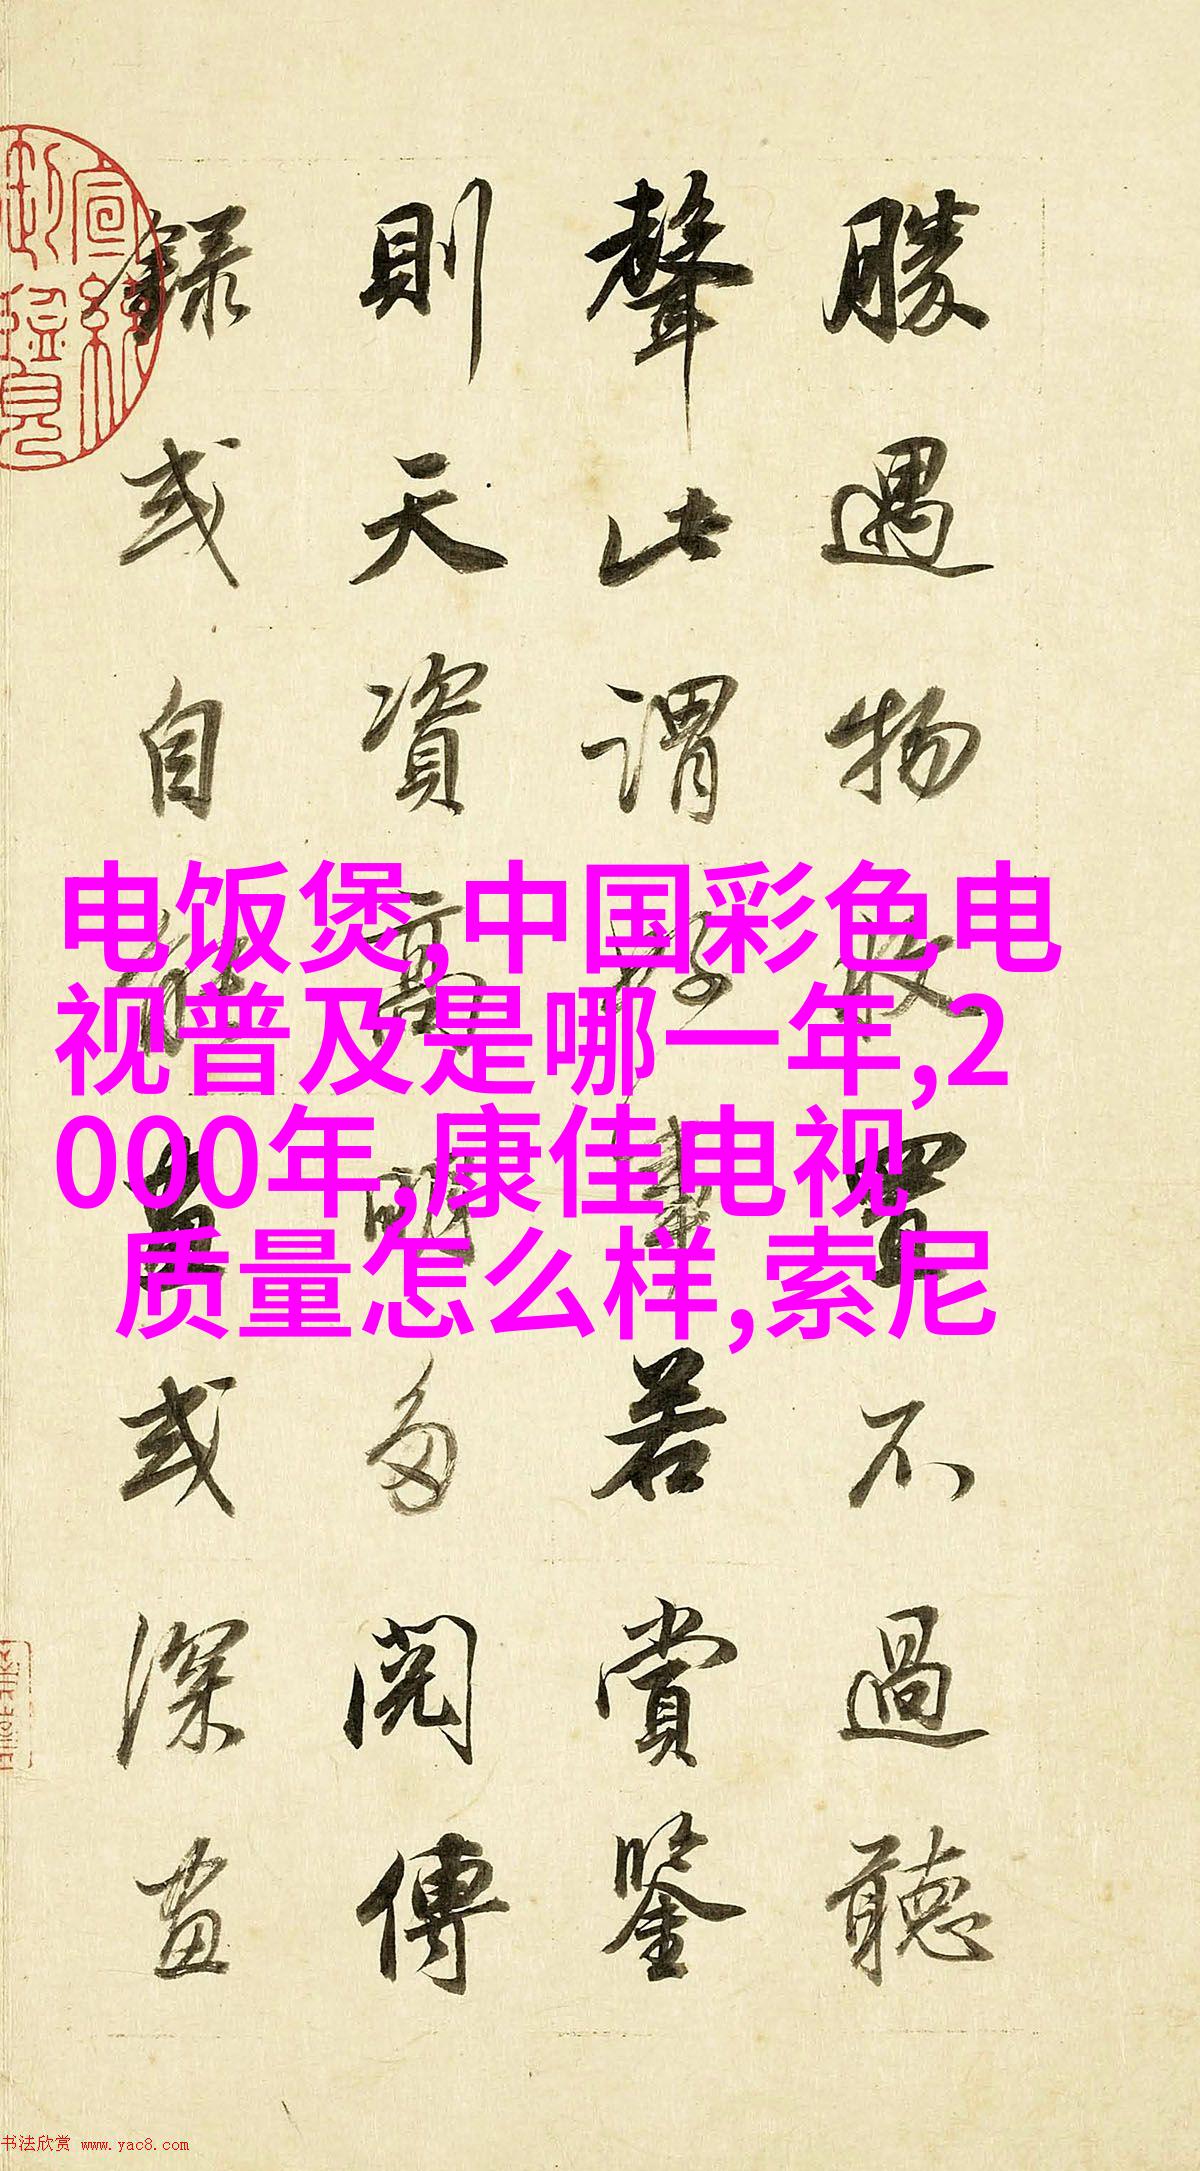 勝遇物收置不過聽
聲此謂好事若賞鑒
則天資高明多閱傳
錄或自能畫或深畫
电饭煲,中国彩色电
视普及是哪一年,2
000年,康佳电视
质量怎么样,索尼
书法欣赏 www.yac8.com